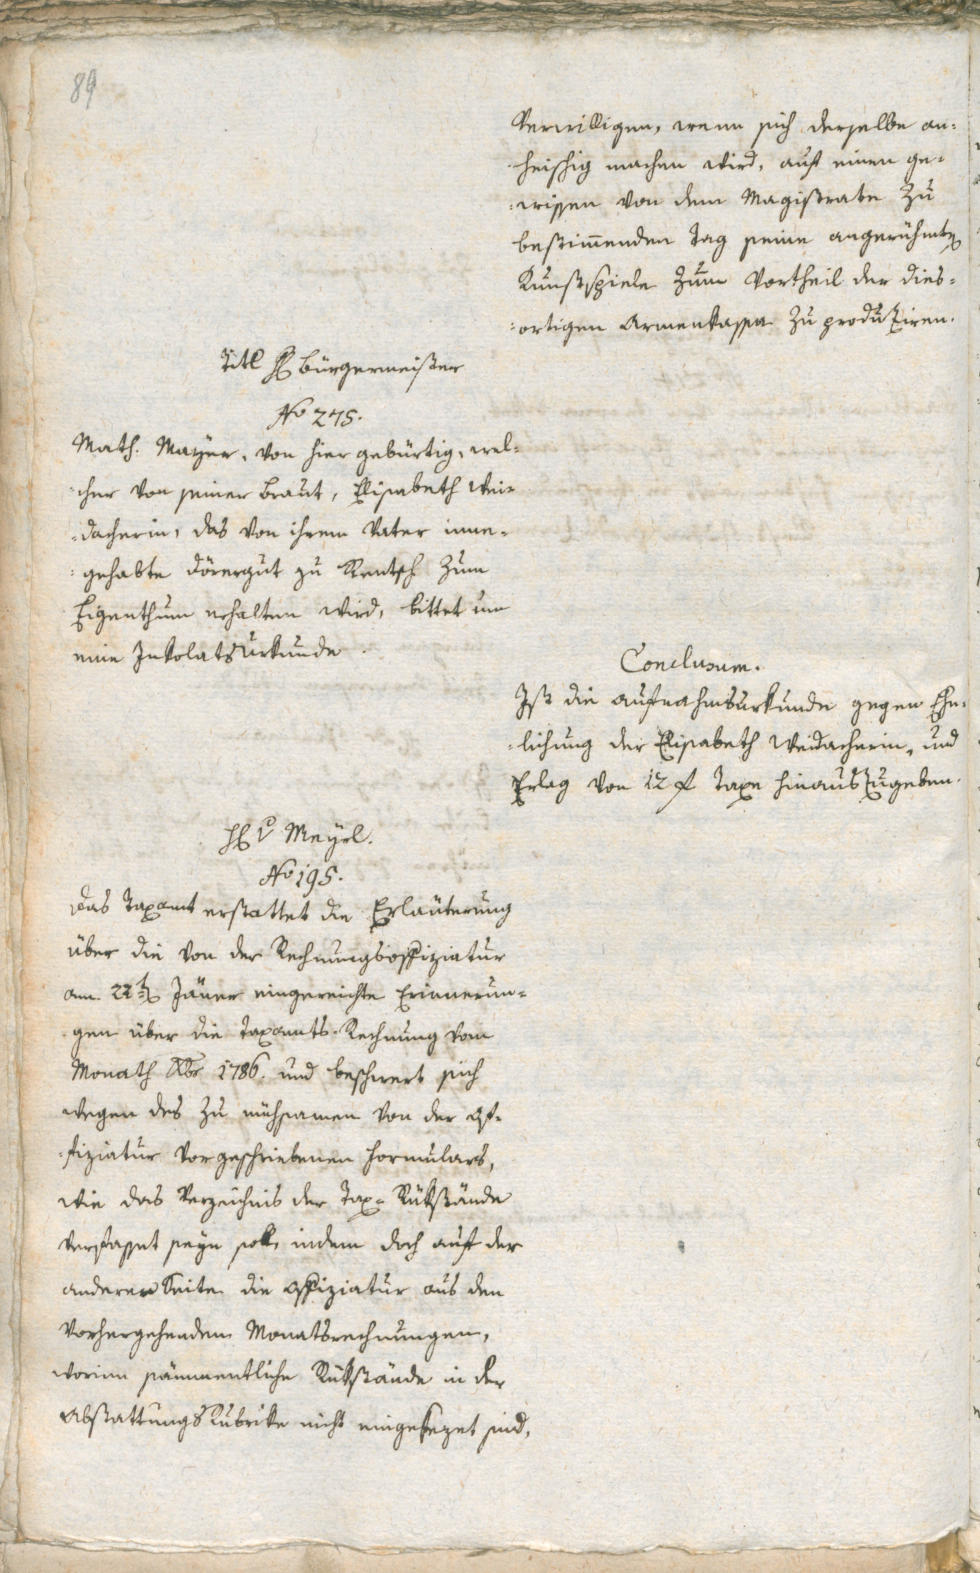 89
Verwilligen, wenn sich derselbe an-
heischig machen wird, auf einen ge-
wissen von dem Magistrate zu
bestimmenden Tag seine angerühmten
Kunstspiele zum Vortheil der dies-
ortigen Armenkasse zu produziren.
Titl H Bürgermeister
No 275.
Math. Mayer, von hier gebürtig, wel-
cher von seiner Braut, Elisabeth Wei-
dacherin, das von ihrem Vater inne-
gehabte Dörergut zu Rentsch zum
Eigenthum erhalten wird, bittet um
eine Inkolatsurkunde.
Conclusum.
Ist die Aufnahmsurkunde gegen Ehe-
lichung der Elisabeth Weidacherin, und
Erlag von 12 f Taxe hinauszugeben.
H v Mayrl.
No 195.
Das Taxamt erstattet die Erläuterung
über die von der Rechnungsoffiziatur
am 22t Jäner eingereichte Erinnerun-
gen über die Taxamts-Rechnung vom
Monath Xbr 1786. und beschwert sich
wegen des zu mühsamen von der Of-
fiziatur vorgeschriebenen Formulars,
wie das Verzeichnis der Tax-Rükstände
verfasset seyn soll, indem doch auf der
anderen Seite die Offiziatur aus den
vorhergehenden Monatsrechnungen,
worinn sämmentliche Rükstände in der
Abstattungs Rubrike nicht eingesezet sind,